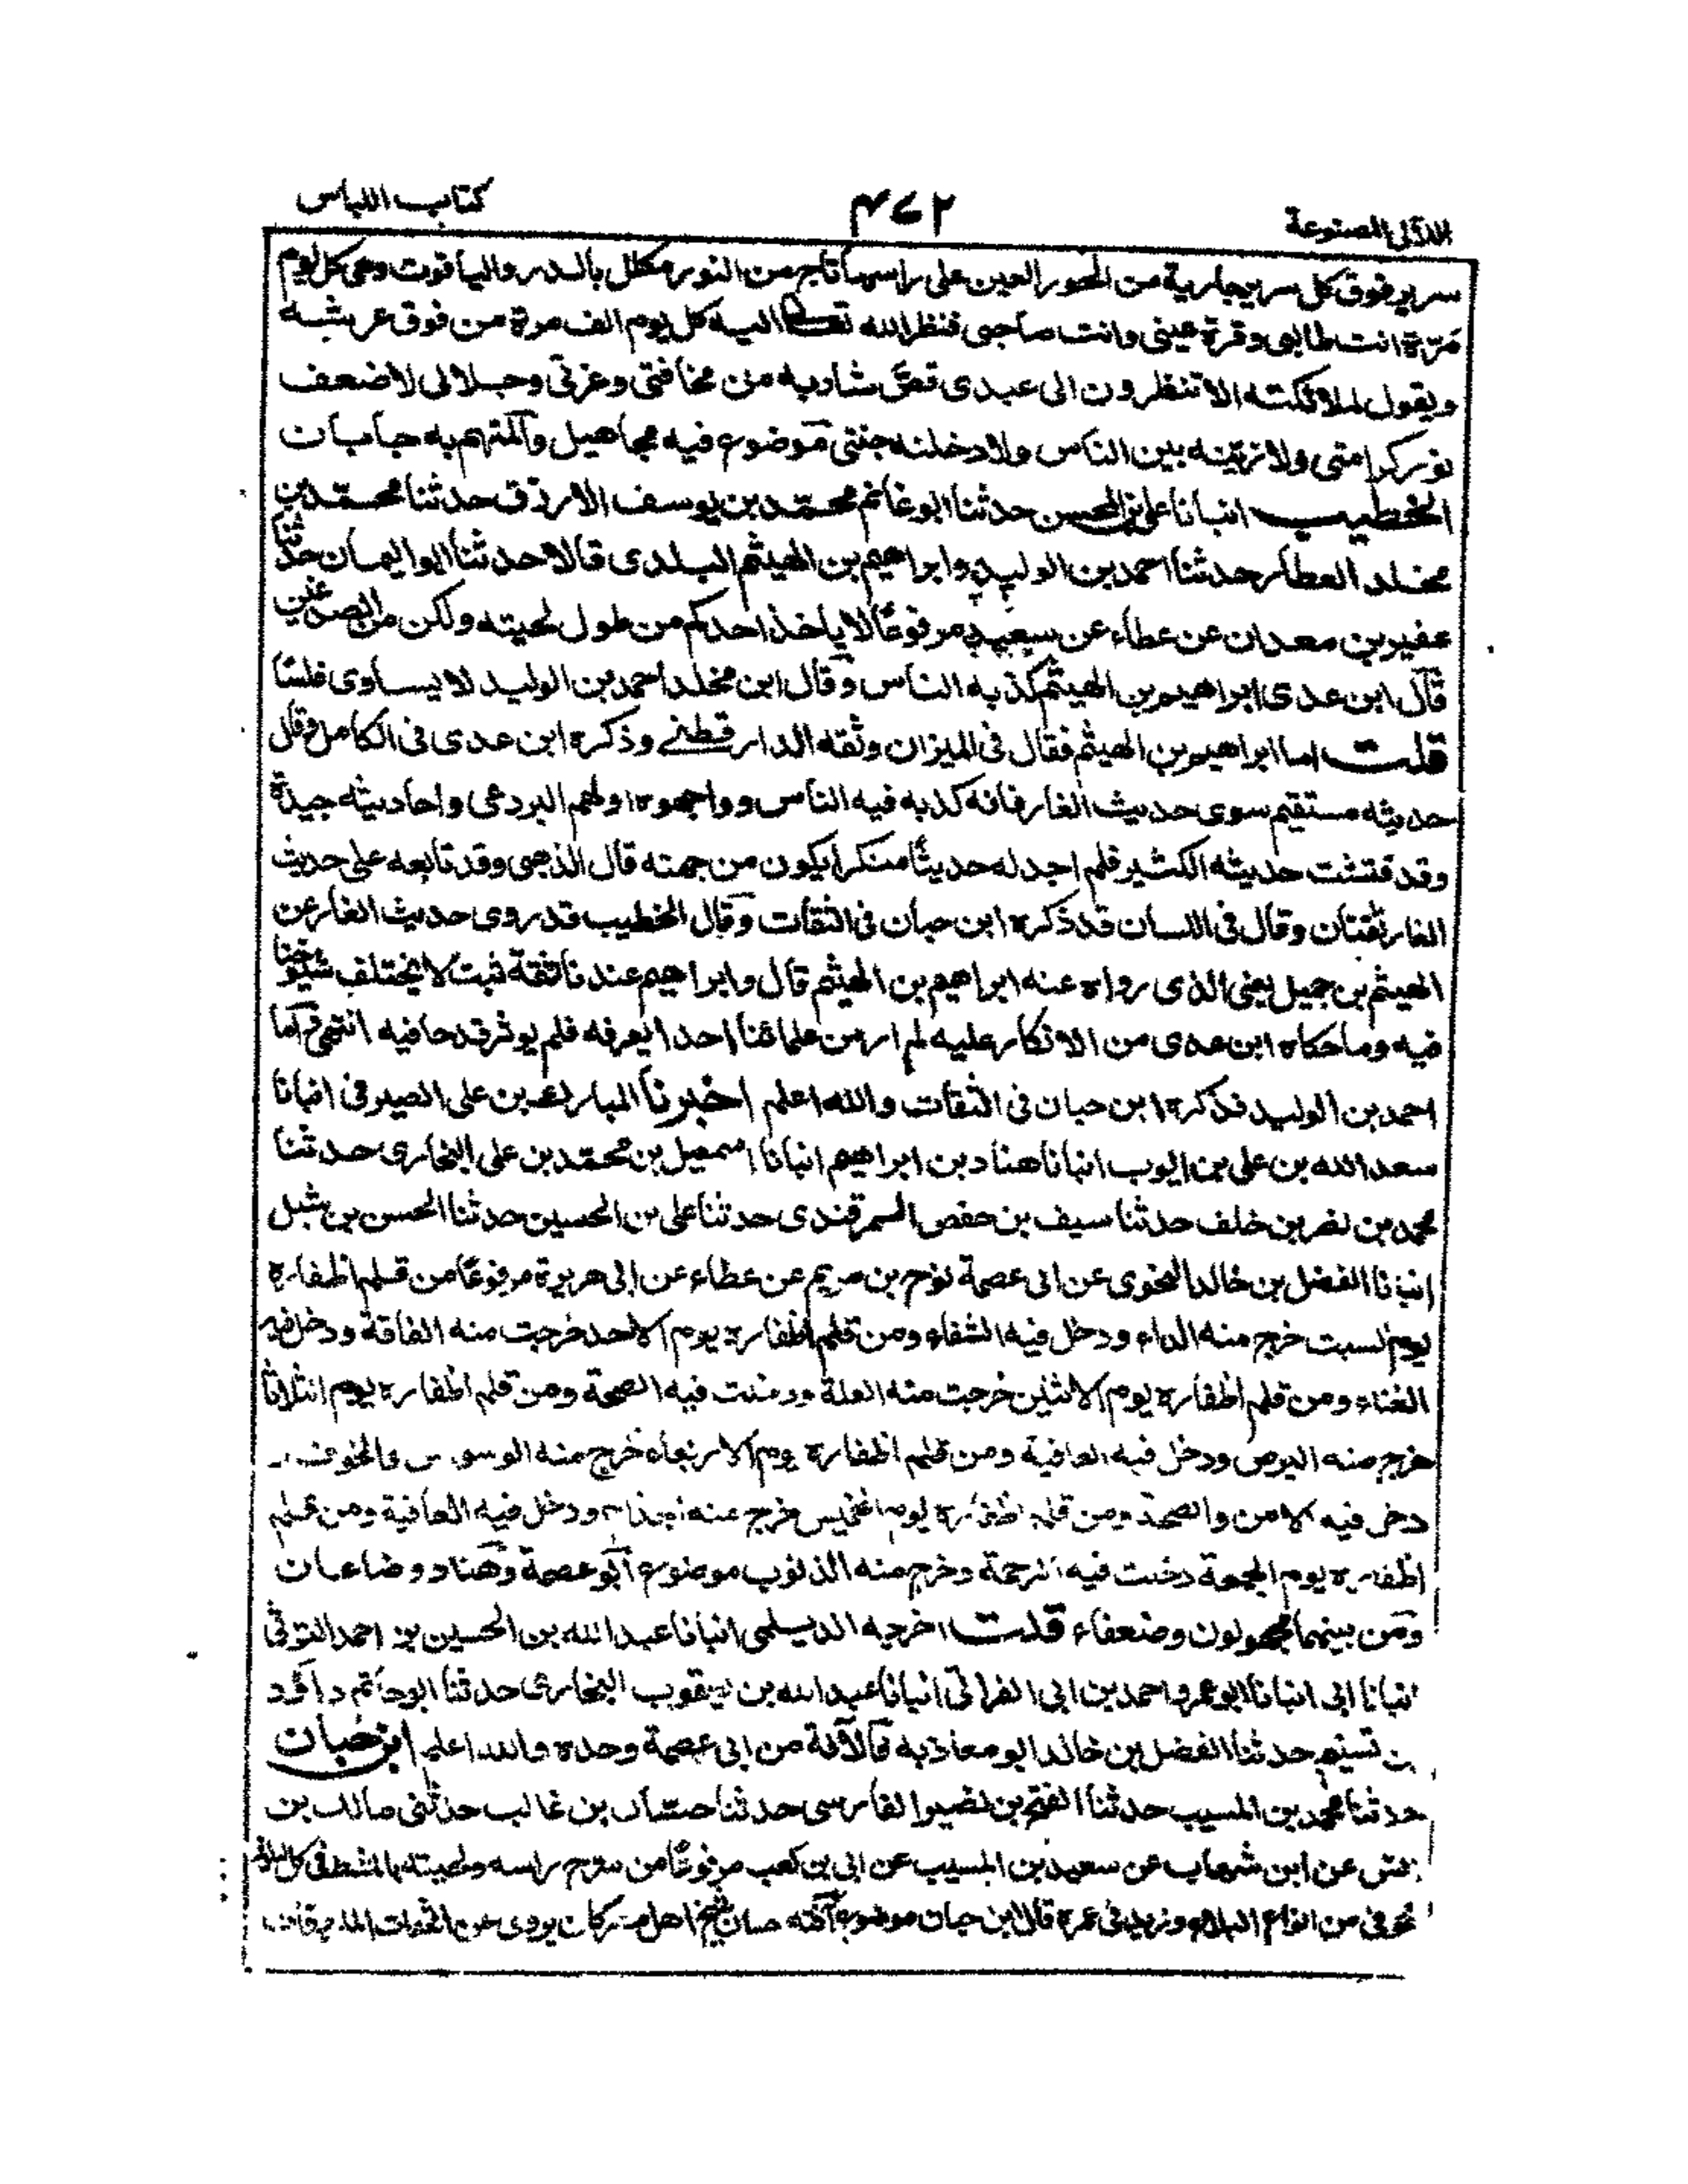 اللآلی المصنوعة ۴۷۲ کتاب اللباس
سرير فوق كل سرير جارية من الحور العين على راسها تاج من النور مكلل بالدر والياقوت وهى كل يوم
مرة انت طالبى وقرة عينى وانت صاحبى فنظر الله تعالى اليه كل يوم الف مرة من فوق عرشه
ويقول لملائكته الا تنظرون الى عبدى قص شاربه من مخافتى وعزتى وجلالى لاضعف
نور كرامتى ولازيننه بين الناس ولادخلنه جنتى موضوع فيه مجاهيل والمتهم به جابان
الخطيب انبانا على بن المحسن حدثنا ابو غانم محمد بن يوسف الازرق حدثنا محمد بن
مخلد العطار حدثنا احمد بن الوليد وابراهيم بن الهيثم البلدى قالا حدثنا ابو اليمان حدثنا
عفير بن معدان عن عطاء عن سعيد مرفوعا لا ياخذ احدكم من طول لحيته ولكن من الصدغين
قال ابن عدى ابراهيم بن الهيثم كذبه الناس وقال ابن مخلد احمد بن الوليد لا يساوى فلسا
قلت اما ابراهيم بن الهيثم فقال فى الميزان وثقه الدارقطنے وذكره ابن عدى فى الكامل وقال
حديثه مستقيم سوى حديث الغار فانه كذبه فيه الناس وواجهوه اولهم البردعى واحاديثه جيدة
وقد فتشت حديثه الكثير فلم اجد له حديثا منكرا يكون من جهته قال الذهبى وقد تابعه على حديث
الغار ثقتان وقال فى اللسان قد ذكره ابن حبان فى الثقات وقال الخطيب قد روى حديث الغار عن
الهيثم بن جميل يعنى الذى رواه عنه ابراهيم بن الهيثم قال وابراهيم عندنا ثقة ثبت لا يختلف شيوخنا
فيه وما حكاه ابن عدى من الانكار عليه لم ار من علمائنا احدا يعرفه فلم يوثر قدحا فيه انتهى واما
احمد بن الوليد فذكره ابن حبان فى الثقات والله اعلم اخبرنا المبارك بن على الصيرفى انبانا
سعد الله بن على بن ايوب انبانا هناد بن ابراهيم انبانا اسمعيل بن محمد بن على البخارى حدثنا
محمد بن نصر بن خلف حدثنا سيف بن حفص السمرقندى حدثنا على بن الحسين حدثنا الحسن بن شبل
انبانا الفضل بن خالد النحوى عن ابى عصمة نوح بن مريم عن عطاء عن ابى هريرة مرفوعا من قلم اظفاره
يوم السبت خرج منه الداء ودخل فيه الشفاء ومن قلم اظفاره يوم الاحد خرجت منه الفاقة ودخل فيه
الغناء ومن قلم اظفاره يوم الاثنين خرجت منه العلة ودخلت فيه الصحة ومن قلم اظفاره يوم الثلاثا
خرج منه البرص ودخل فيه العافية ومن قلم اظفاره يوم الاربعاء خرج منه الوسواس والخوف
دخل فيه الامن والصحة ومن قلم اظفاره يوم الخميس خرج منه الجذام ودخل فيه العافية ومن قلم
اظفاره يوم الجمعة دخلت فيه الرحمة وخرج منه الذنوب موضوع ابو عصمة وهناد وضاعان
ومن بينهما مجهولون وضعفاء قلت اخرجه الديلمى انبانا عبد الله بن الحسين بن احمد التوثى
انبانا ابى انبانا ابو عمرو احمد بن ابى الفراتى انبانا عبد الله بن يعقوب البخارى حدثنا ابو حاتم داؤد
بن تسنيم حدثنا الفضل بن خالد ابو معاذ به فالآفة من ابى عصمة وحده والله اعلم ابن حبان
حدثنا محمد بن المسيب حدثنا الفتح بن نصير الفارسى حدثنا حسان بن غالب حدثنى مالك بن
انس عن ابن شهاب عن سعيد بن المسيب عن ابى بن كعب مرفوعا من سرح راسه ولحيته بالمشط فى كل ليلة
عوفى من انواع البلاء وزيد فى عمره قال ابن حبان موضوع آفته حسان شيخ اهل كان يروى عن الثقات الملزقات